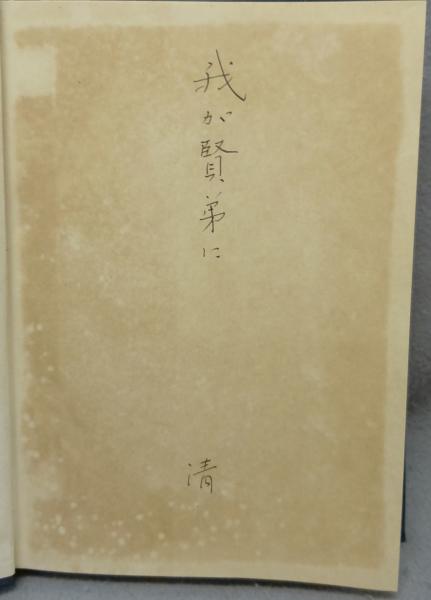 我が賢弟に
清